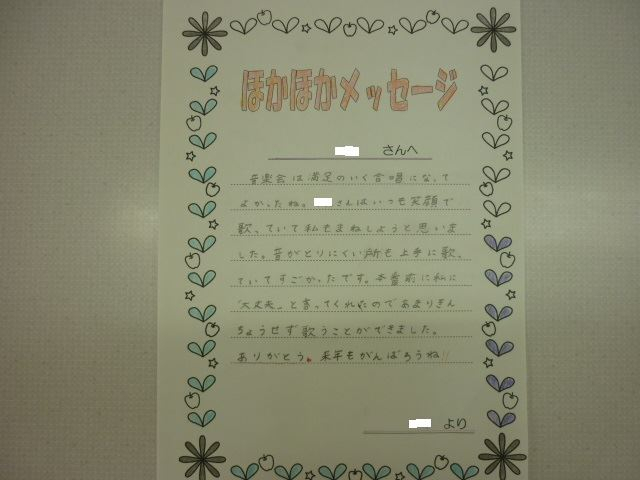 ほかほかメッセージ
さんへ
音楽会は満足のいく合唱になって
よかったね。さんはいつも笑顔で
歌っていて私もまねしようと思いま
した。音がとりにくい所も上手に歌っ
ていてすごかったです。本番前に私に
「大丈夫」と言ってくれたのであまりきん
ちょうせず歌うことができました。
ありがとう。来年もがんばろうね!!
より